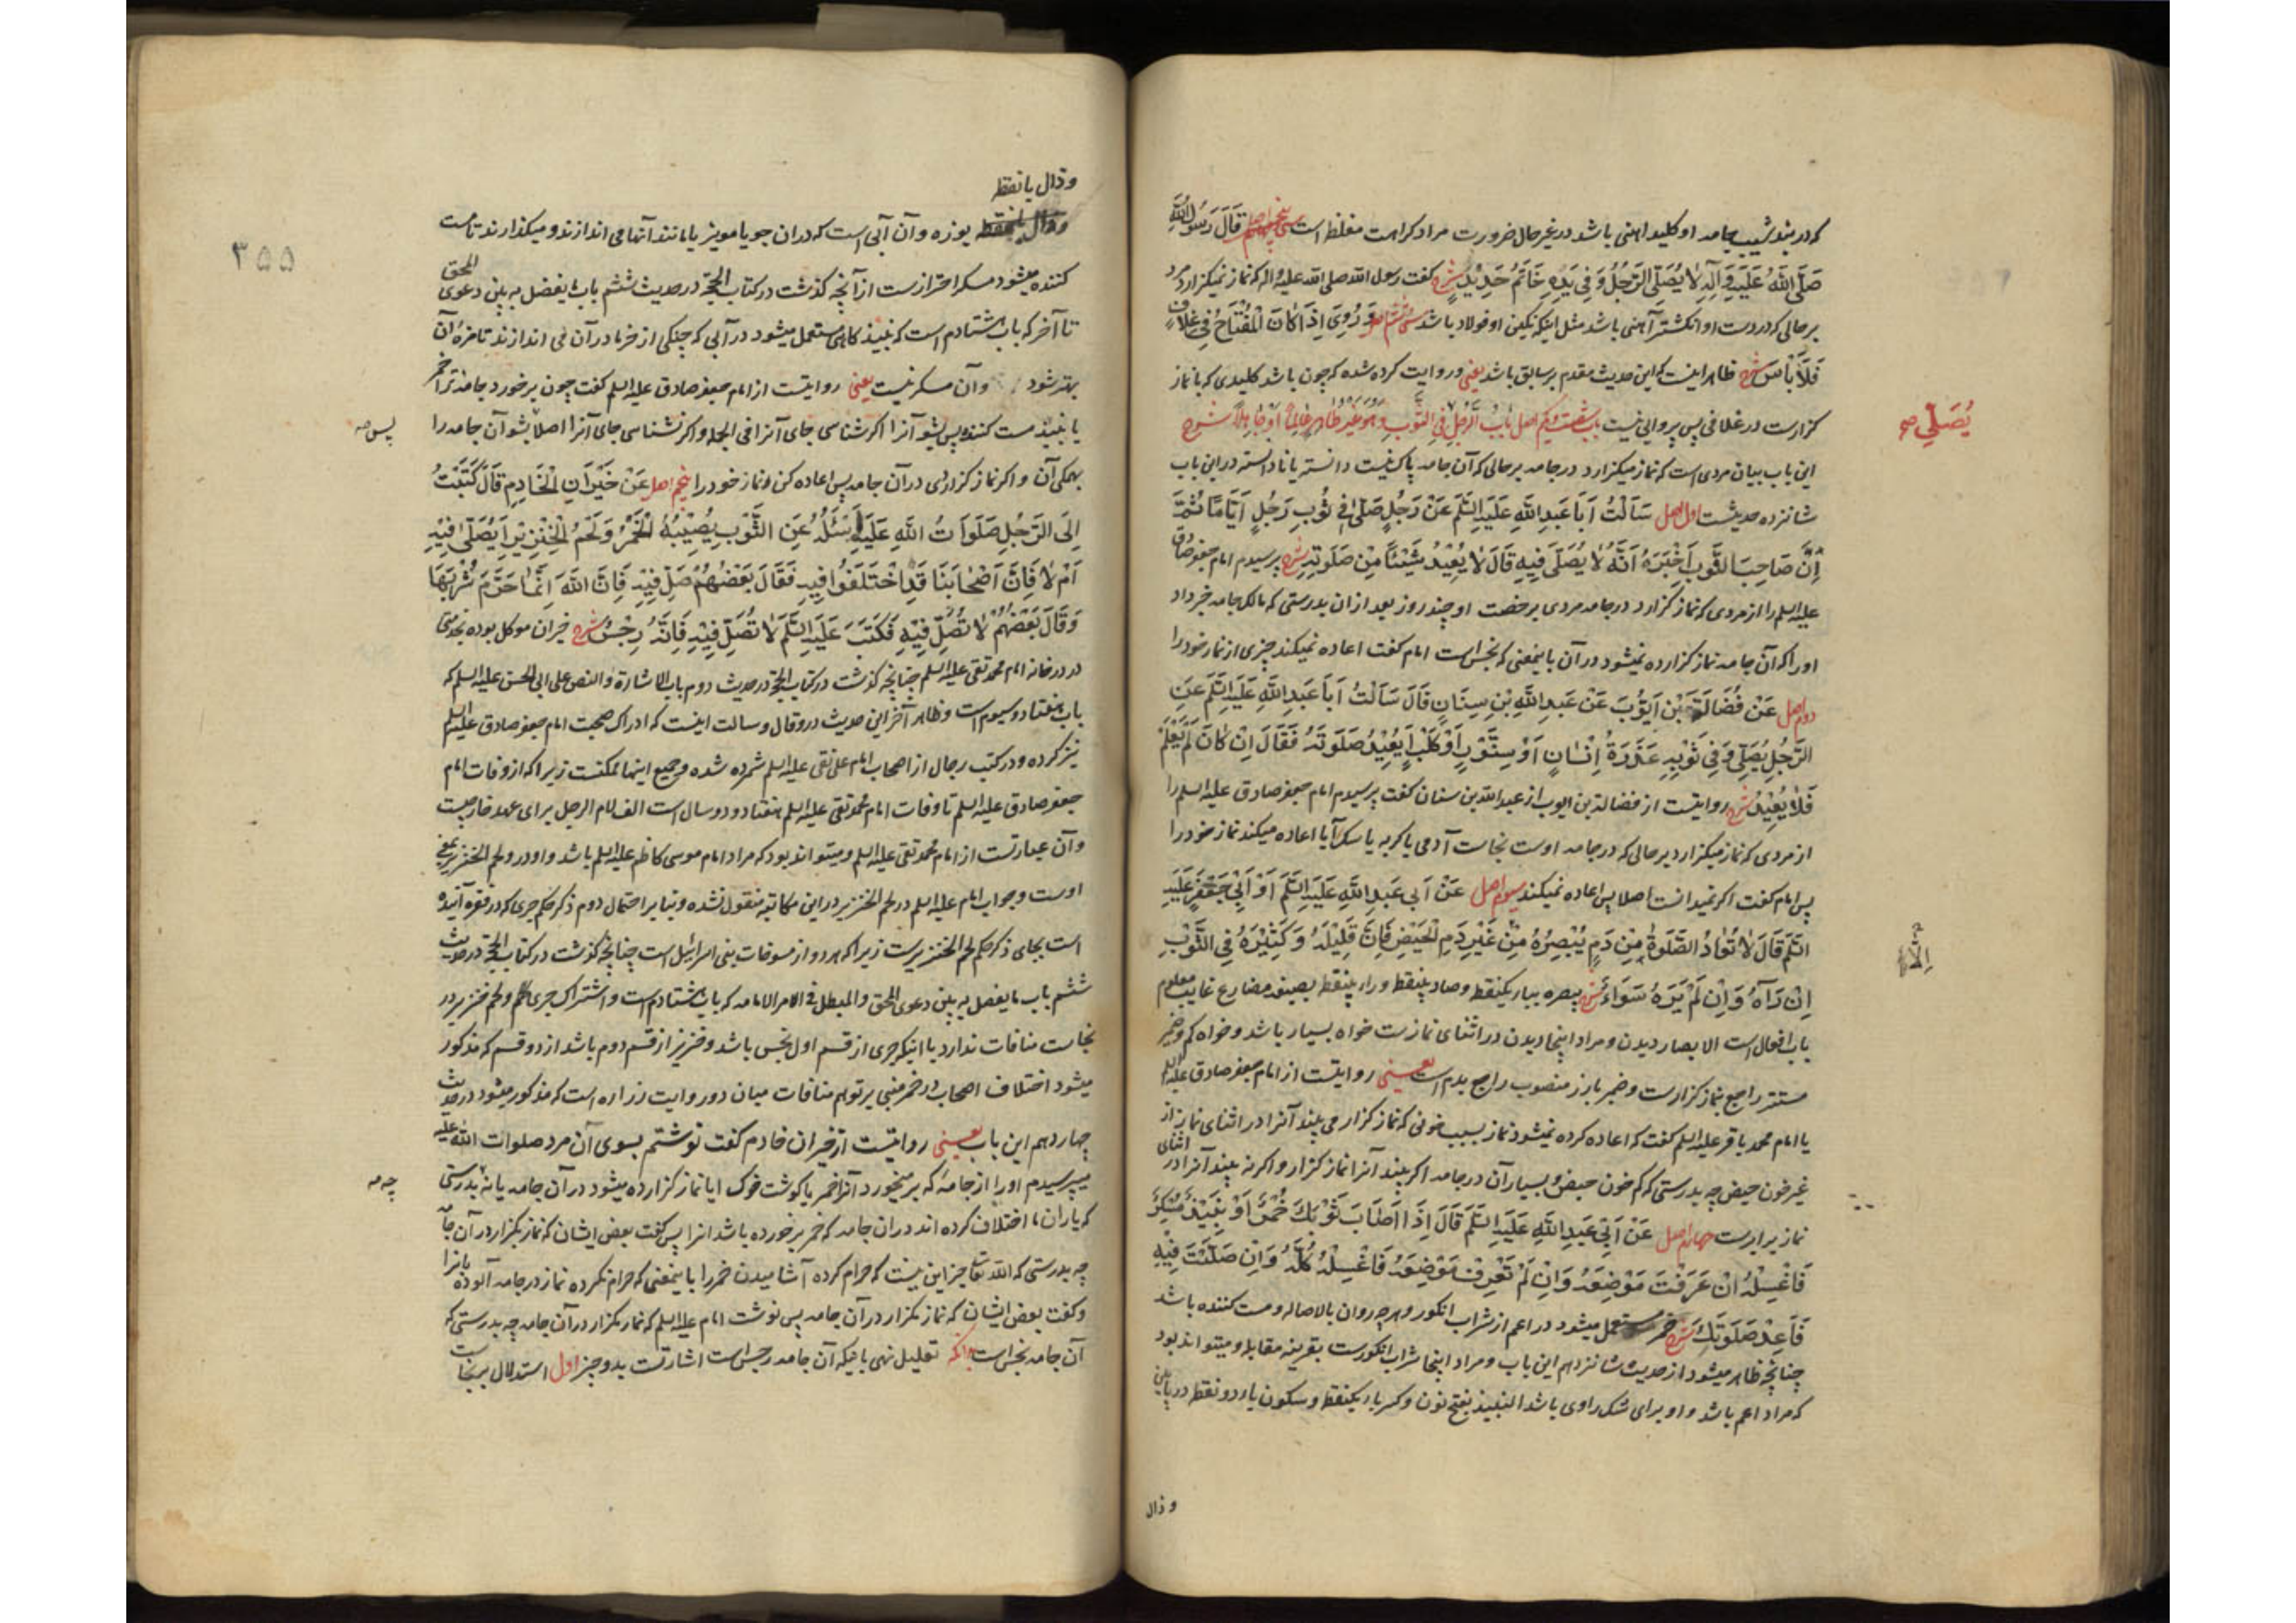 که در بند شیب جامه او کلید اهنی باشد در غیر حال ضرورت مراد کراهت مغلظ است سی پنجم اصل قَالَ رَسُولُ اللّٰهِ
صَلَّی اللّٰهُ عَلَیْهِ وَآلِهِ لَا یُصَلِّی الرَّجُلُ وَفِی یَدِهِ خَاتَمُ حَدِیْدٍ شرح گفت رسول الله صلی الله علیه و اله که نماز نمیکزارد مرد
بر حالی که در دست او انکشتر آهنی باشد مثل اینکه نکین او فولاد باشد سی ششم اصل وَ رُوِیَ اِذَا کَانَ الْمِفْتَاحُ فِی غِلَافٍ
فَلَا بَأْسَ شرح ظاهر اینست که این حدیث مقدم بر سابق باشد یعنی و روایت کرده شده که چون باشد کلیدی که با نماز
کزارست در غلافی پس پروایی نیست باب شصت و یکم اصل بَابُ الرَّجُلِ یُصَلِّی فِی الثَّوْبِ وَهُوَ غَیْرُ طَاهِرٍ عَالِمًا أَوْ جَاهِلًا شرح
یُصَلِّی صح
این باب بیان مردی است که نماز میکزارد در جامه بر حالی که آن جامه پاک نیست دانسته یا نادانسته در این باب
شانزده حدیثست اول اصل سَاَلْتُ اَبَا عَبْدِ اللّٰهِ عَلَیْهِ السَّلَمُ عَنْ رَجُلٍ صَلّٰی فِی ثَوْبِ رَجُلٍ اَیَّامًا ثُمَّ
اِنَّ صَاحِبَ الثَّوْبِ اَخْبَرَهُ اَنَّهُ لَا یُصَلّٰی فِیهِ قَالَ لَا یُعِیْدُ شَیْئًا مِنْ صَلَوتِهِ شرح پرسیدم امام جعفر صادق
علیه السلم را از مردی که نماز کزارد در جامه مردی برخصت او چند روز بعد ازان بدرستی که مالک جامه خبر داد
اورا که آن جامه نماز کزارده نمیشود در آن باینمعنی که نجس است امام گفت اعاده نمیکند چیزی از نماز خود را
دوم اصل عَنْ فُضَالَةَ بْنِ اَیُّوْبَ عَنْ عَبْدِ اللّٰهِ بْنِ سِنَانٍ قَالَ سَاَلْتُ اَبَا عَبْدِ اللّٰهِ عَلَیْهِ السَّلَمُ عَنِ
الرَّجُلِ یُصَلِّی وَفِی ثَوْبِهِ عَذِرَةُ اِنْسَانٍ اَوْ سِنَّوْرٍ اَوْ کَلْبٍ اَیُعِیْدُ صَلَوتَهُ فَقَالَ اِنْ کَانَ لَمْ یَعْلَمْ
فَلَا یُعِیْدُ شرح روایتست از فضالة بن ایوب از عبد الله بن سنان گفت پرسیدم امام جعفر صادق علیه السلم را
از مردی که نماز میکزارد بر حالی که در جامه اوست نجاست آدمی یا کربه یا سک آیا اعاده میکند نماز خود را
پس امام گفت اکر نمیدانست اصلا پس اعاده نمیکند سیوم اصل عَنْ اَبِی عَبْدِ اللّٰهِ عَلَیْهِ السَّلَمُ اَوْ اَبِی جَعْفَرٍ عَلَیْهِ
السَّلَمُ قَالَ لَا تُعَادُ الصَّلَوةُ مِنْ دَمٍ یُبْصِرُهُ مِنْ غَیْرِ دَمِ الْحَیْضِ فَاِنَّ قَلِیْلَهُ وَ کَثِیْرَهُ فِی الثَّوْبِ
اِلَّا
اِنْ رَآهُ وَاِنْ لَمْ یَرَهُ سَوَاءٌ شرح یبصره بباء یکنقطه و صاد بینقطه و راء بینقطه بصیغه مضارع غایب معلوم
باب افعال است الابصار دیدن و مراد اینجا دیدن در اثنای نمازست خواه بسیار باشد و خواه کم و ضمیر
مستتر راجع بنماز کزارست و ضمیر بارز منصوب راجع بدم است یعنی روایتست از امام جعفر صادق علیه السلم
یا امام محمد باقر علیه السلم گفت که اعاده کرده نمیشود نماز بسبب خونی که نماز کزار می بیند آنرا در اثنای نماز از
غیر خون حیض چه بدرستی که کم خون حیض و بسیار آن در جامه اکر بیند آنرا نماز کزار و اکر نه بیند آنرا در اثنای
نماز برابرست چهارم اصل عَنْ اَبِی عَبْدِ اللّٰهِ عَلَیْهِ السَّلَمُ قَالَ اِذَا اَصَابَ ثَوْبَکَ خَمْرٌ اَوْ نَبِیْذٌ مُسْکِرٌ
فَاغْسِلْهُ اِنْ عَرَفْتَ مَوْضِعَهُ وَاِنْ لَمْ تَعْرِفْ مَوْضِعَهُ فَاغْسِلْهُ کُلَّهُ وَاِنْ صَلَّیْتَ فِیْهِ
فَاَعِدْ صَلَوتَکَ شرح خمر مستعمل میشود در اعم از شراب انکور و هر چه روان بالاصاله و مست کننده باشد
چنانچه ظاهر میشود از حدیث شانزدهم این باب و مراد اینجا شراب انکورست بقرینه مقابله و میتواند بود
که مراد اعم باشد و او برای شک راوی باشد النبیذ بفتح نون و کسر باء یکنقطه و سکون یاء دو نقطه در پایین
و ذال
۳۵۵
و ذال با نقطه
بوزه و آن آبی است که در ان جو یا مویز یا مانند آنها می اندازند و میکذارند تا مست
کننده میشود مسکر احترازست از آنچه کذشت در کتاب الحجة در حدیث ششم باب ما یفصل به بین دعوی المحق
تا آخر که باب هشتادم است که نبیذ کاهی مستعمل میشود در آبی که چنکی از خرما در آن می اندازند تا مزهٔ آن
بهتر شود و آن مسکر نیست یعنی روایتست از امام جعفر صادق علیه السلم گفت چون برخورد جامهٔ ترا خمر
یا نبیذ مست کننده پس بشو آنرا اکر شناسی جای آنرا فی الجمله و اکر نشناسی جای آنرا اصلا بشو آن جامه را
پس صح
بهمکی آن و اکر نماز کزاردی در آن جامه پس اعاده کن نماز خود را پنجم اصل عَنْ خَیْرَانِ الْخَادِمِ قَالَ کَتَبْتُ
اِلَی الرَّجُلِ صَلَوَاتُ اللّٰهِ عَلَیْهِ اَسْئَلُهُ عَنِ الثَّوْبِ یُصِیْبُهُ الْخَمْرُ وَلَحْمُ الْخِنْزِیْرِ اَیُصَلّٰی فِیْهِ
اَمْ لَا فَاِنَّ اَصْحَابَنَا قَدِ اخْتَلَفُوْا فِیهِ فَقَالَ بَعْضُهُمْ صَلِّ فِیْهِ فَاِنَّ اللّٰهَ اِنَّمَا حَرَّمَ شُرْبَهَا
وَقَالَ بَعْضُهُمْ لَا تُصَلِّ فِیْهِ فَکَتَبَ عَلَیْهِ السَّلَمُ لَا تُصَلِّ فِیْهِ فَاِنَّهُ رِجْسٌ شرح خیران موکل بوده بخدمتی
در در خانه امام محمد تقی علیه السلم چنانچه کذشت در کتاب الحجة در حدیث دوم باب الاشارة و النص علی ابی الحسن علیه السلم که
باب هفتاد و سیوم است و ظاهر آخر این حدیث در وقال وسالت اینست که ادراک صحبت امام جعفر صادق علیه السلم
نیز کرده و در کتب رجال از اصحاب امام علی نقی علیه السلم شمرده شده و جمیع اینها ممکنست زیرا که از وفات امام
جعفر صادق علیه السلم تا وفات امام محمد تقی علیه السلم هفتاد و دو سال است الف لام الرجل برای عهد خارجیست
و آن عبارتست از امام محمد تقی علیه السلم و میتواند بود که مراد امام موسی کاظم علیه السلم باشد و او در و لحم الخنزیر بمعنی
اوست و جواب امام علیه السلم در لحم الخنزیر در این مکاتبه منقول نشده و بنا بر احتمال دوم ذکر حکم جری که در فقرهٔ آینده
است بجای ذکر حکم لحم الخنزیرست زیرا که هر دو از مسوخات بنی اسرائیل است چنانچه کذشت در کتاب الحجة در حدیث
ششم باب ما یفصل به بین دعوی المحق و المبطل فی الامر الامامه که باب هشتادم است و اشتراک جری و لحم خنزیر در
نجاست منافات ندارد با اینکه جری از قسم اول نجس باشد و خنزیر از قسم دوم باشد از دو قسم که مذکور
میشود اختلاف اصحاب در خمر مبنی بر توهم منافات میان دو روایت زراره است که مذکور میشود در حدیث
چهاردهم این باب یعنی روایتست از خیران خادم گفت نوشتم بسوی آن مرد صلوات الله علیه
میپرسیدم اورا از جامهٔ که بر میخورد آنرا خمر یا کوشت خوک ایا نماز کزارده میشود در آن جامه یا نه بدرستی
چه صح
که یاران ما اختلاف کرده اند در ان جامه که خمر بر خورده باشد انرا پس گفت بعض ایشان که نماز بکزار در آن جامه
چه بدرستی که الله تعالی جز این نیست که حرام کرده آشامیدن خمر را باینمعنی که حرام نکرده نماز در جامه آلوده بانرا
و گفت بعض ایشان که نماز مکزار در آن جامه پس نوشت امام علیه السلم که نماز مکزار در آن جامه چه بدرستی که
آن جامه نجس است بدانکه تعلیل نهی باینکه آن جامه رجس است اشارتست بدو چیز اول استدلال بر نجاست